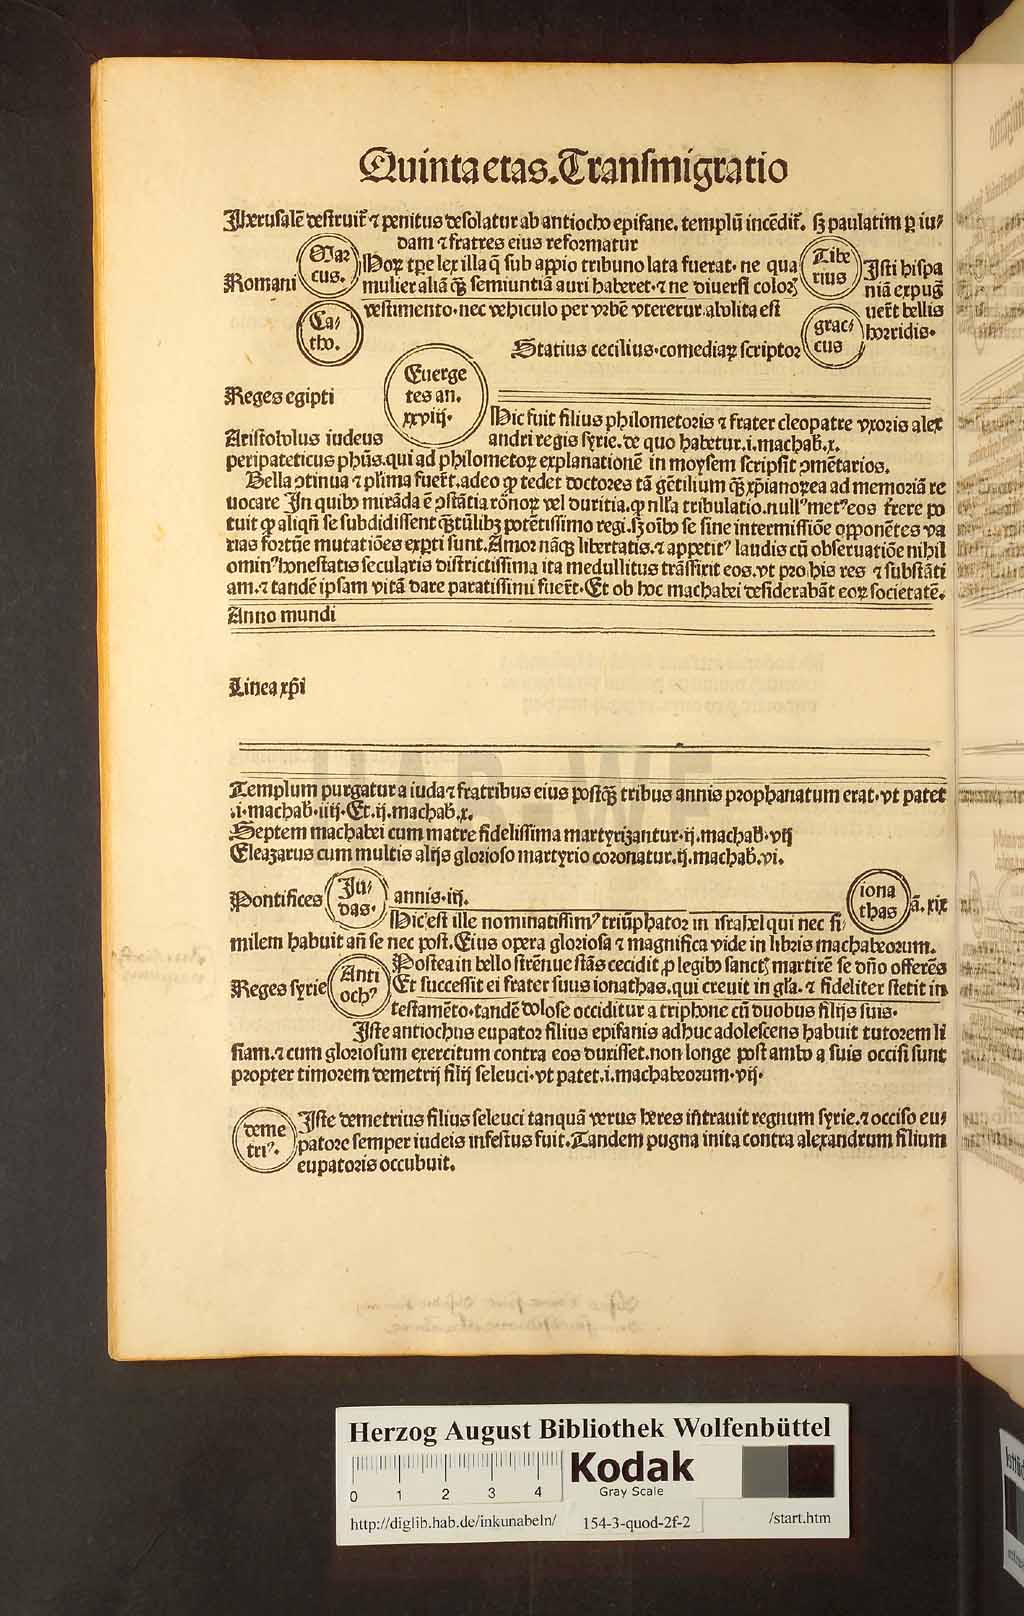 Quinta etas. Transmigratio
Jherusalē destruit᷒ ⁊ penitus desolatur ab antiocho epifane. templū incēdit᷒. sꝫ paulatim ꝑ iu⸗
dam ⁊ fratres eius reformatur
Romani
Mar
cus.
Hoꝝ tꝑe lex illa q̄ sub appio tribuno lata fuerat· ne qua
mulier aliā q̄ꝫ semiuntiā auri haberet·⁊ ne diuersi coloꝝ
vestimento·nec vehiculo per vrbē vteretur abolita est
Tibe
rius
Isti hispa
niā expug̃
uer̄t bellis
horridis·
Ca⸗
tho.
grac⸗
cus
Statius cecilius·comediaꝝ scriptor
Reges egipti
Euerge
tes an.
xxviij·
Hic fuit filius philometoris ⁊ frater cleopatre vxoris alex
andri regis syrie. de quo habetur.i.machab̄.x.
Aristobolus iudeus
peripateticus phūs.qui ad philometoꝝ explanationē in moysem scripsit ꝯmētarios.
Bella ꝯtinua ⁊ plīma fuer̄t.adeo ꝙ tedet doctores tā gētilium q̄ꝫ xp̄ianoꝝ ea ad memoriā re
uocare In quibꝰ mirāda ē ꝯstātia rōnoꝝ vel duritia.ꝙ nll̄a tribulatio.nullꝰ metꝰ eos t̄rere po
tuit ꝙ aliqñ se subdidissent q̄ꝫtūlibꝫ potētissimo regi.sꝫ oībꝰ se sine intermissiōe opponētes va
rias fortūe mutatiōes exꝑti sunt.Amor nāqꝫ libertatis.⁊ appetitꝰ laudis cū obseruatiōe nihil
ominꝰ honestatis secularis districtissima ita medullitus trāssirit eos.vt pro his res ⁊ substāti
am.⁊ tandē ipsam vitā dare paratissimi fuer̄t·Et ob hoc machabei desiderabāt eoꝝ societatē.
Anno mundi
Linea xp̄i
Templum purgatur a iuda ⁊ fratribus eius postq̄ꝫ tribus annis prophanatum erat·vt patet
.i·machab̄·iiij·Et.ij.machab̄.x.
Septem machabei cum matre fidelissima martyrizantur·ij.machab̄·vij
Eleazarus cum multis alijs glorioso martyrio coronatur.ij.machab̄.vi.
Pontifices
Ju⸗
das·
annis·iij.
iona
thas
ā.xix
Hic est ille nominatissimꝰ triūphator in israhel qui nec si⸗
milem habuit añ se nec post.Eius opera gloriosa ⁊ magnifica vide in libris machabeorum.
Reges syrie
Anti
ochꝰ
Postea in bello strēnue stās cecidit ꝓ legibꝰ sanctꝭ martirē se dño offerēs
Et successit ei frater suus ionathas.qui creuit in gl̄a.⁊ fideliter stetit in
testamēto·tandē dolose occiditur a triphone cū duobus filijs suis·
Iste antiochus eupator filius epifanis adhuc adolescens habuit tutorem li
siam.⁊ cum gloriosum exercitum contra eos duxisset.non longe post ambo a suis occisi sunt
propter timorem demetrij filij seleuci·vt patet.i.machabeorum·vij·
deme
triꝰ.
Iste demetrius filius seleuci tanquā verus heres intrauit regnum syrie.⁊ occiso eu⸗
patore semper iudeis infestus fuit.Tandem pugna inita contra alexandrum filium
eupatoris occubuit.
HAB-WF
Herzog August Bibliothek Wolfenbüttel
0 1 2 3 4
Kodak
Gray Scale
http://diglib.hab.de/inkunabeln/ 154-3-quod-2f-2 /start.htm